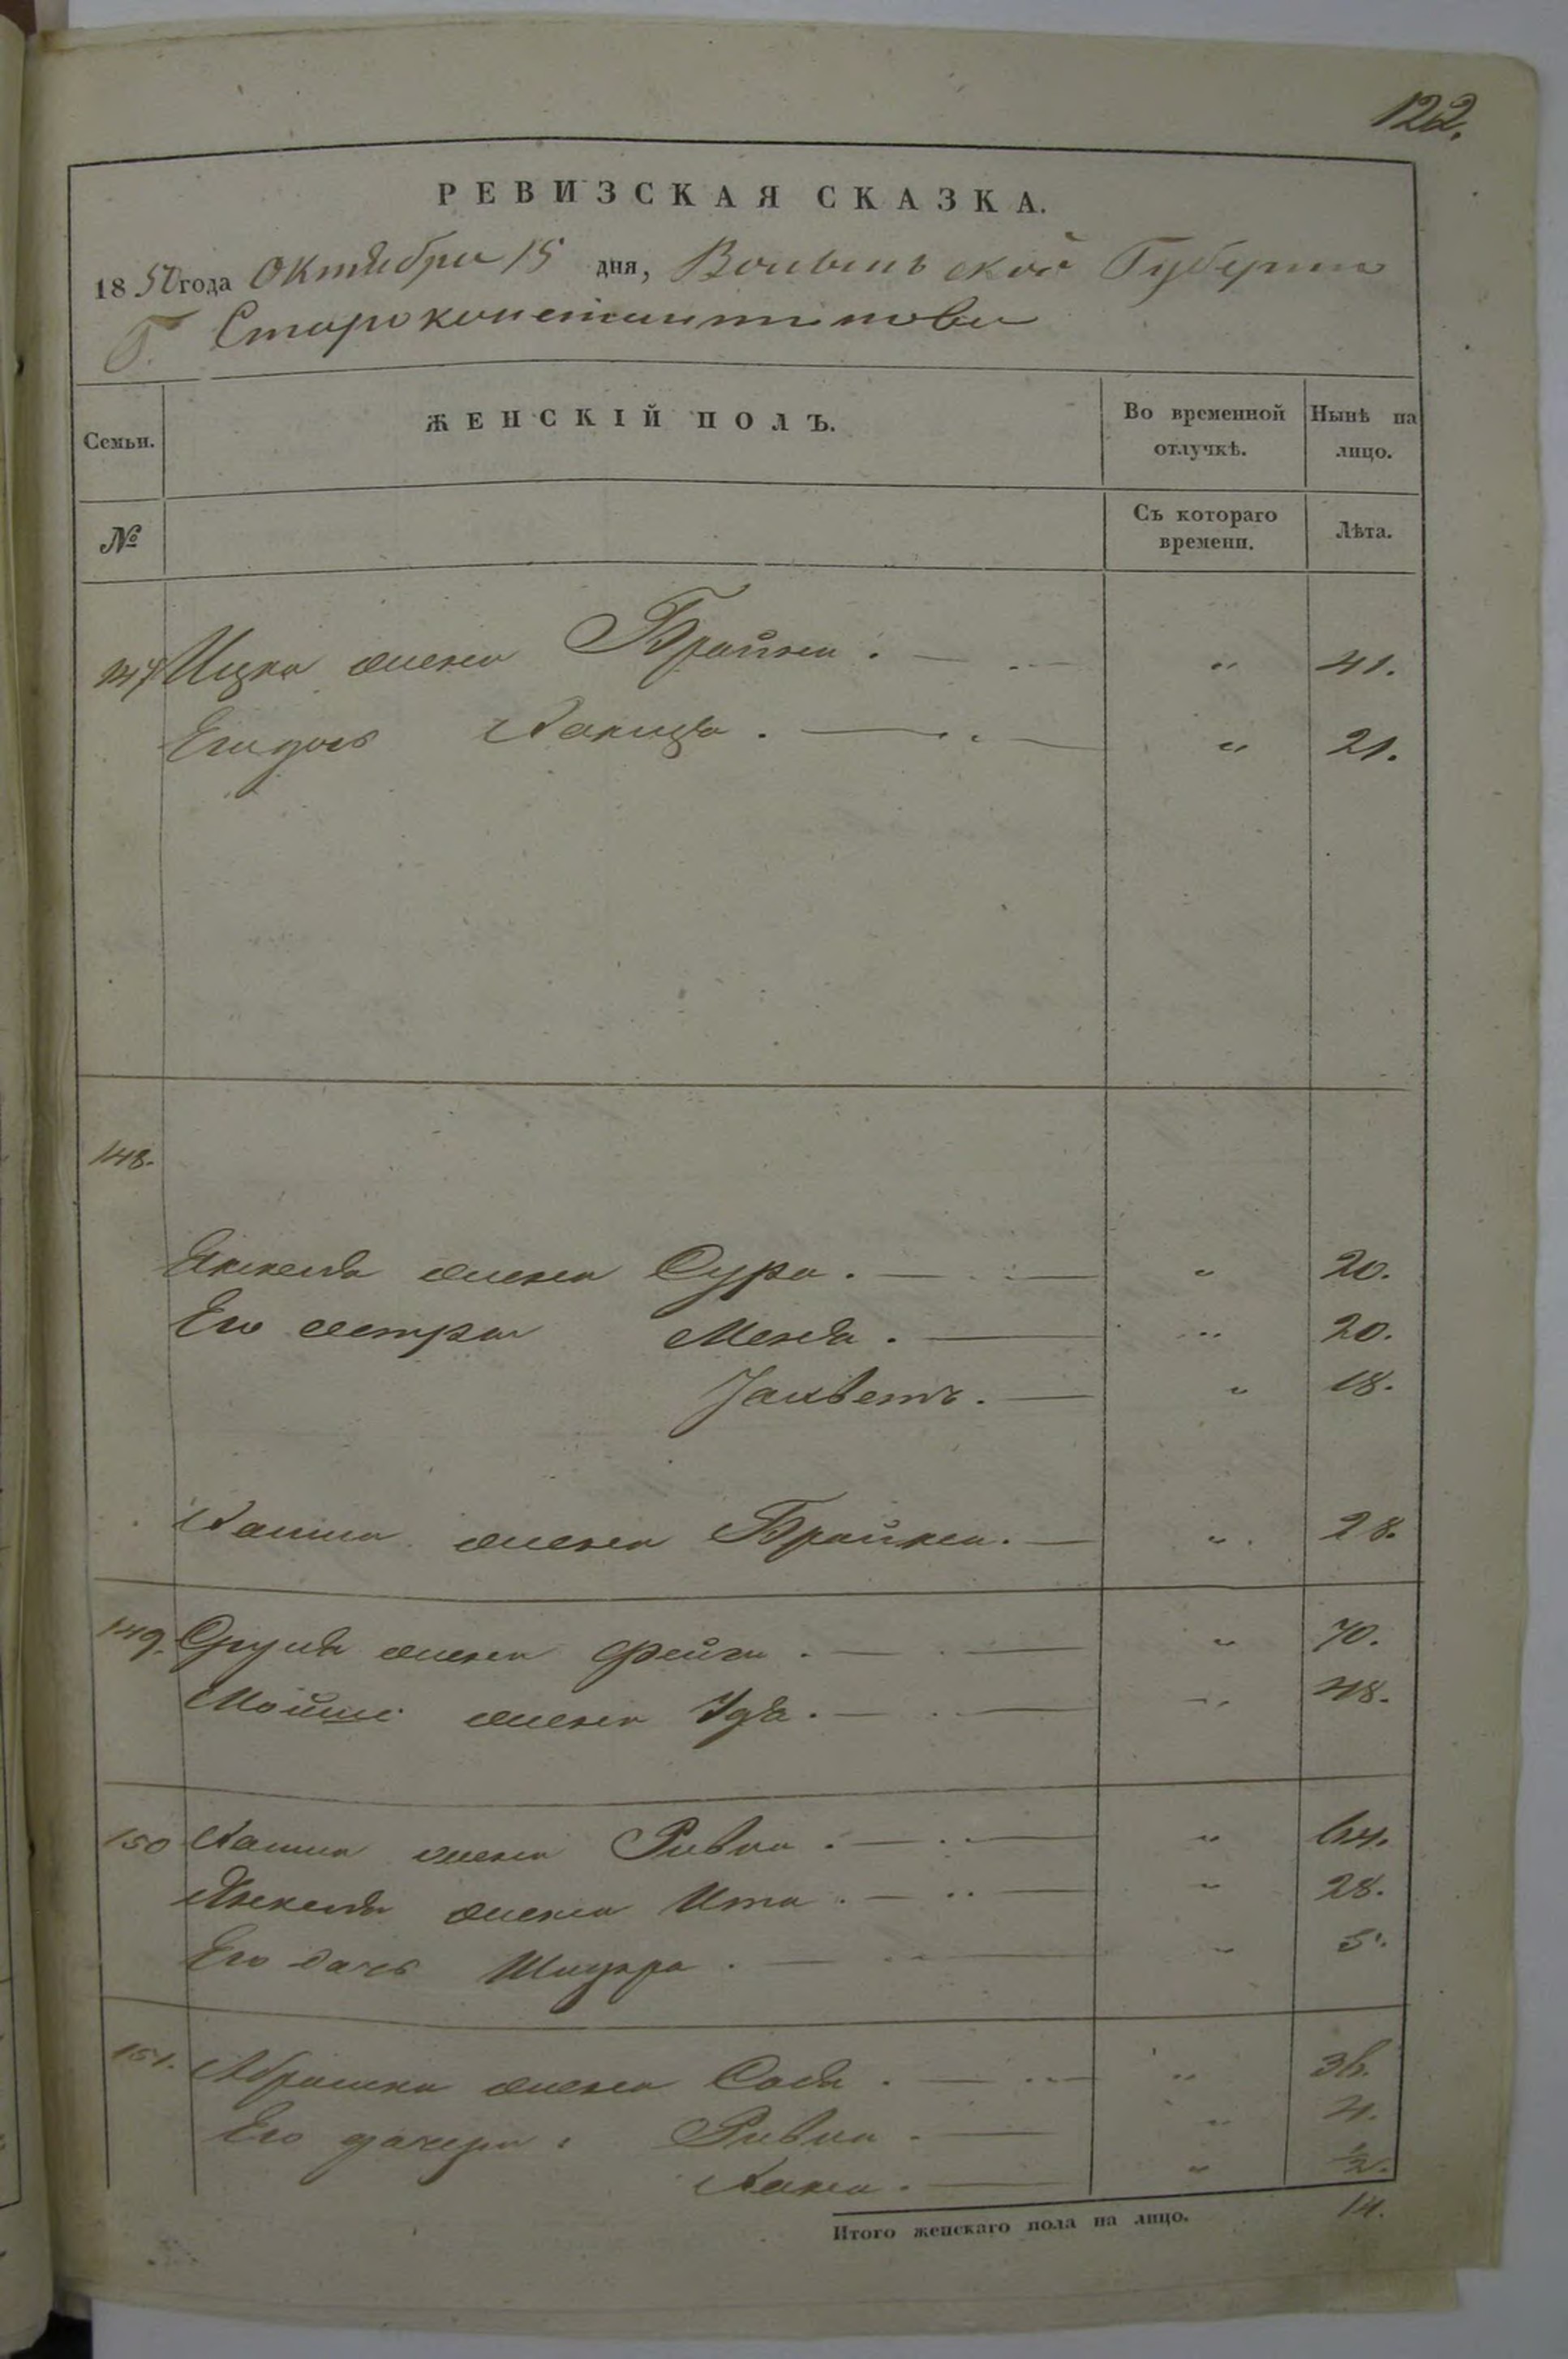 122.
РЕВИЗСКАЯ СКАЗКА.
1850 года Октября 15 дня, Волынской Губернии
Г. Староконстантинова
Семьи. ЖЕНСКІЙ ПОЛЪ. Во временной отлучкѣ. Нынѣ на лицо.
№ Съ котораго времени. Лѣта.
147 Ицка жена Брайна. — „ 41.
Его дочь — „ 21.
148.
Янкеля жена Сура. — „ 20.
Его сестры Меня. — „ 20.
— „ 18.
жена Брайна. — „ 28.
149. Сруля жена Фейга. — „ 70.
Мойше жена Идя. — „ 48.
150 жена Ривка. — „ 64.
Янкеля жена Ита. — „ 28.
Его дочь — „ 5.
151. Абрамка жена Сося. — „ 36.
Его дочери: Ривка. — „ 4.
Хана. — „ ½.
Итого женскаго пола на лицо. 14.